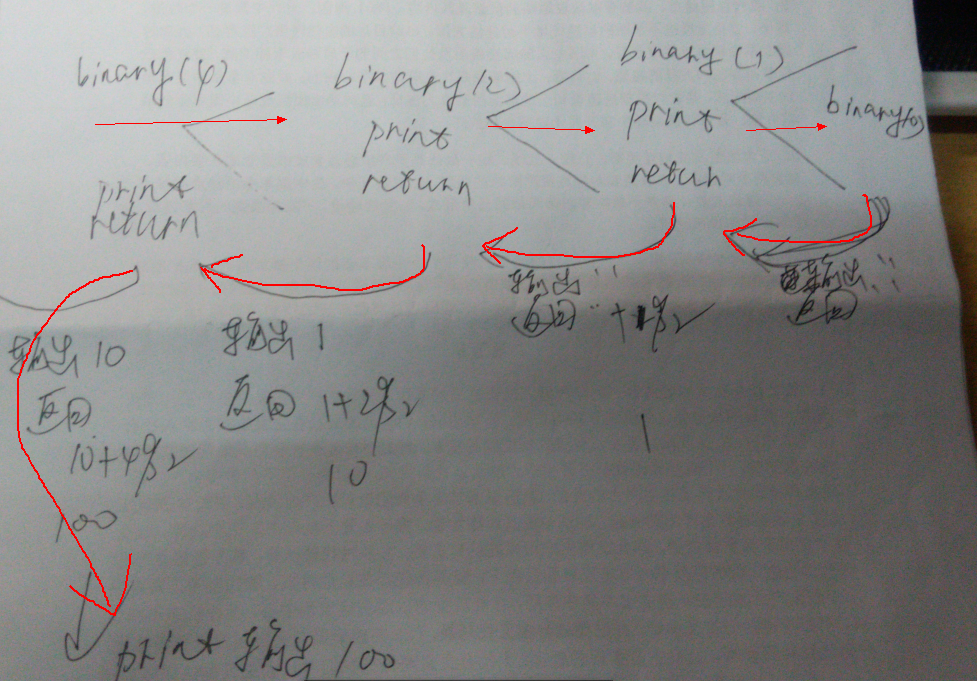 binary(4)
print
return
输出 10
返回
10+4%2
100
binary(2)
print
return
输出 1
返回 1+2%2
10
binary(1)
print
return
输出 ''
返回 '' +1%2
1
binary(0)
输出 ''
返回 ''
print 输出 100